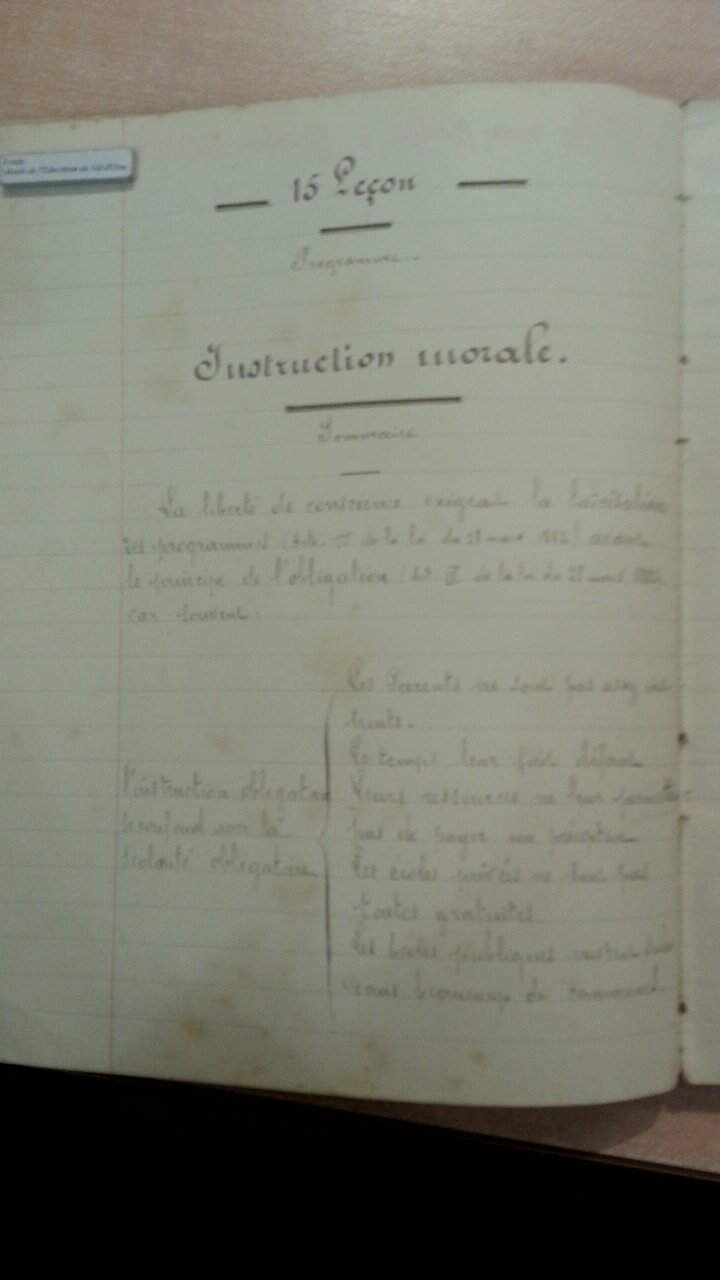 Musée de l'Education du Val d'Oise
15 Leçon
Programme.
Instruction morale.
Sommaire
La liberté de conscience exigeait la laïcisation
des programmes (Art. de la loi du 28 mars 1882) avant
le principe de l'obligation (Art. de la loi du 28 mars 1882)
car souvent :
l'instruction obligatoire
se confond avec la
scolarité obligatoire
Les Parents ne sont pas assez ins-
truits.
Le temps leur fait défaut
Leurs ressources ne leur permettent
pas de payer un précepteur
Les écoles privées ne sont pas
toutes gratuites
Les écoles publiques sont
dans beaucoup de communes.